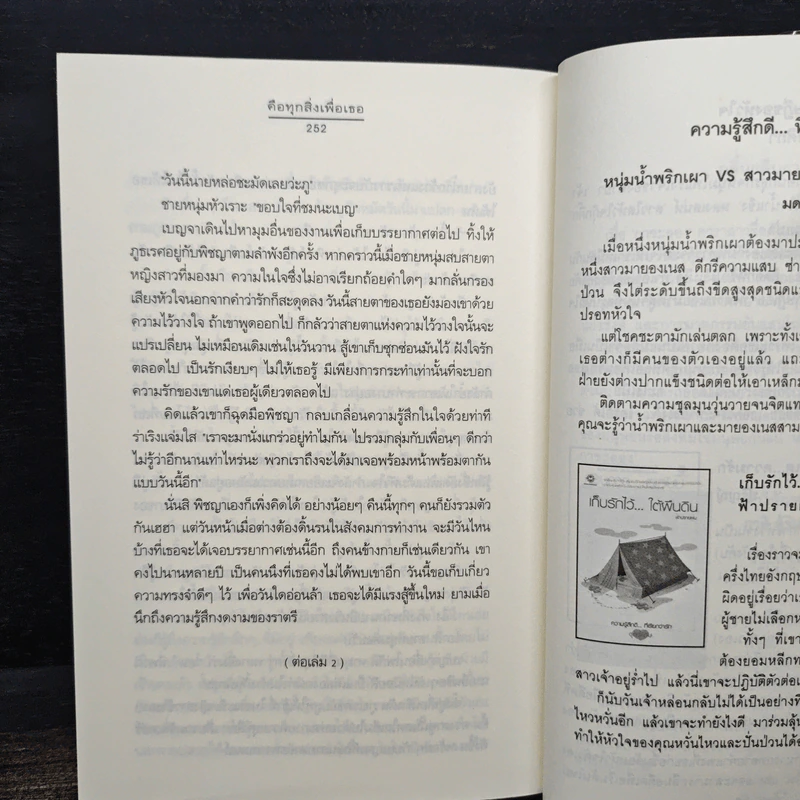 คือทุกสิ่งเพื่อเธอ
252
"วันนี้นายหล่อชะมัดเลยว่ะภู"
ชายหนุ่มหัวเราะ "ขอบใจที่ชมนะเบญ"
เบญจาเดินไปหามุมอื่นของงานเพื่อเก็บบรรยากาศต่อไป ทิ้งให้
ภูธเรศอยู่กับพิชญาตามลำพังอีกครั้ง หากคราวนี้เมื่อชายหนุ่มสบสายตา
หญิงสาวที่มองมา ความในใจซึ่งไม่อาจเรียกถ้อยคำใดๆ มากลั่นกรอง
เสียงหัวใจนอกจากคำว่ารักก็สะดุดลง วันนี้สายตาของเธอยังมองเขาด้วย
ความไว้วางใจ ถ้าเขาพูดออกไป ก็กลัวว่าสายตาแห่งความไว้วางใจนั้นจะ
แปรเปลี่ยน ไม่เหมือนเดิมเช่นในวันวาน สู้เขาเก็บซุกซ่อนมันไว้ ฝังใจรัก
ตลอดไป เป็นรักเงียบๆ ไม่ให้เธอรู้ มีเพียงการกระทำเท่านั้นที่จะบอก
ความรักของเขาแด่เธอผู้เดียวตลอดไป
คิดแล้วเขาก็ฉุดมือพิชญา กลบเกลื่อนความรู้สึกในใจด้วยท่าที
ร่าเริงแจ่มใส "เราจะมานั่งแกร่วอยู่ทำไมกัน ไปรวมกลุ่มกับเพื่อนๆ ดีกว่า
ไม่รู้ว่าอีกนานเท่าไหร่นะ พวกเราถึงจะได้มาเจอพร้อมหน้าพร้อมตากัน
แบบวันนี้อีก"
นั่นสิ พิชญาเองก็เพิ่งคิดได้ อย่างน้อยๆ คืนนี้ทุกๆ คนก็ยังรวมตัว
กันเฮฮา แต่วันหน้าเมื่อต่างต้องดิ้นรนในสังคมการทำงาน จะมีวันไหน
บ้างที่เธอจะได้เจอบรรยากาศเช่นนี้อีก ถึงคนข้างกายก็เช่นเดียวกัน เขา
คงไปนานหลายปี เป็นคนนึงที่เธอคงไม่ได้พบเขาอีก วันนี้ขอเก็บเกี่ยว
ความทรงจำดีๆ ไว้ เพื่อวันใดอ่อนล้า เธอจะได้มีแรงสู้ขึ้นใหม่ ยามเมื่อ
นึกถึงความรู้สึกงดงามของราตรี
( ต่อเล่ม 2 )
ความรู้สึกดี...
หนุ่มน้ำพริกเผา VS สาวมาย
มด
เมื่อหนึ่งหนุ่มน้ำพริกเผาต้องมาป
หนึ่งสาวมายองเนส ดีกรีความแสบ ซ่า
ป่วน จึงไต่ระดับขึ้นถึงขีดสูงสุดชนิดแ
ปรอทหัวใจ
แต่โชคชะตามักเล่นตลก เพราะทั้งเ
เธอต่างก็มีคนของตัวเองอยู่แล้ว แถ
ฝ่ายยังต่างปากแข็งชนิดต่อให้เอาเหล็ก
ติดตามความชุลมุนวุ่นวายจนจิตแท
คุณจะรู้ว่าน้ำพริกเผาและมายองเนสสาม
เก็บรักไว้... ใต้ผืนดิน
ความรู้สึกดี... ที่เรียกว่ารัก
เก็บรักไว้.
ฟ้าปราย
เรื่องราวจ
ครึ่งไทยอังกฤษ
ผิดอยู่เรื่อยว่าเ
ผู้ชายไม่เลือกห
ทั้งๆ ที่เขา
ต้องยอมหลีกท
สาวเจ้าอยู่ร่ำไป แล้วนี่เขาจะปฏิบัติตัวต่อเ
ก็นับวันเจ้าหล่อนกลับไม่ได้เป็นอย่างที
ไหวหวั่นอีก แล้วเขาจะทำยังไงดี มาร่วมลุ้น
ทำให้หัวใจของคุณหวั่นไหวและปั่นป่วนได้อ